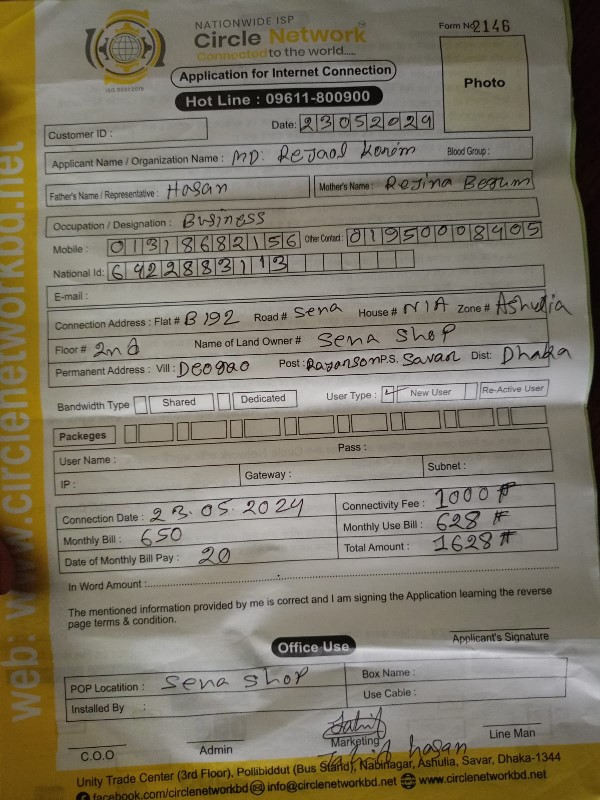 NATIONWIDE ISP
Circle Network
Connected to the world.....
ISO 9001:2015
Form No 2146
Application for Internet Connection
Photo
Hot Line : 09611-800900
Date: 23052024
Customer ID :
Applicant Name / Organization Name : MD: Rejaol Karim Blood Group :
Father's Name / Representative : Hasan Mother's Name : Rejina Begum
Occupation / Designation : Business
Mobile : 01318682156 Other Contact : 01950008405
National Id: 6422883113
E-mail :
Connection Address : Flat # B192 Road # Sena House # N/A Zone # Ashulia
Floor # 2nd Name of Land Owner # Sena Shop
Permanent Address : Vill : Deogao Post : P.S. Savar Dist: Dhaka
Bandwidth Type Shared Dedicated User Type : New User Re-Active User
Packeges
User Name : Pass :
IP : Gateway : Subnet :
Connection Date : 23.05.2024 Connectivity Fee : 1000
Monthly Bill : 650 Monthly Use Bill : 628
Date of Monthly Bill Pay : 20 Total Amount : 1628
In Word Amount :
The mentioned information provided by me is correct and I am signing the Application learning the reverse
page terms & condition.
Applicant's Signature
Office Use
POP Locatition : Sena Shop Box Name :
Installed By : Use Cable :
C.O.O Admin Marketing Line Man
hasan
Unity Trade Center (3rd Floor), Pollibiddut (Bus Stand), Nabinagar, Ashulia, Savar, Dhaka-1344
facebook.com/circlenetworkbd info@circlenetworkbd.net www.circlenetworkbd.net
web: www.circlenetworkbd.net